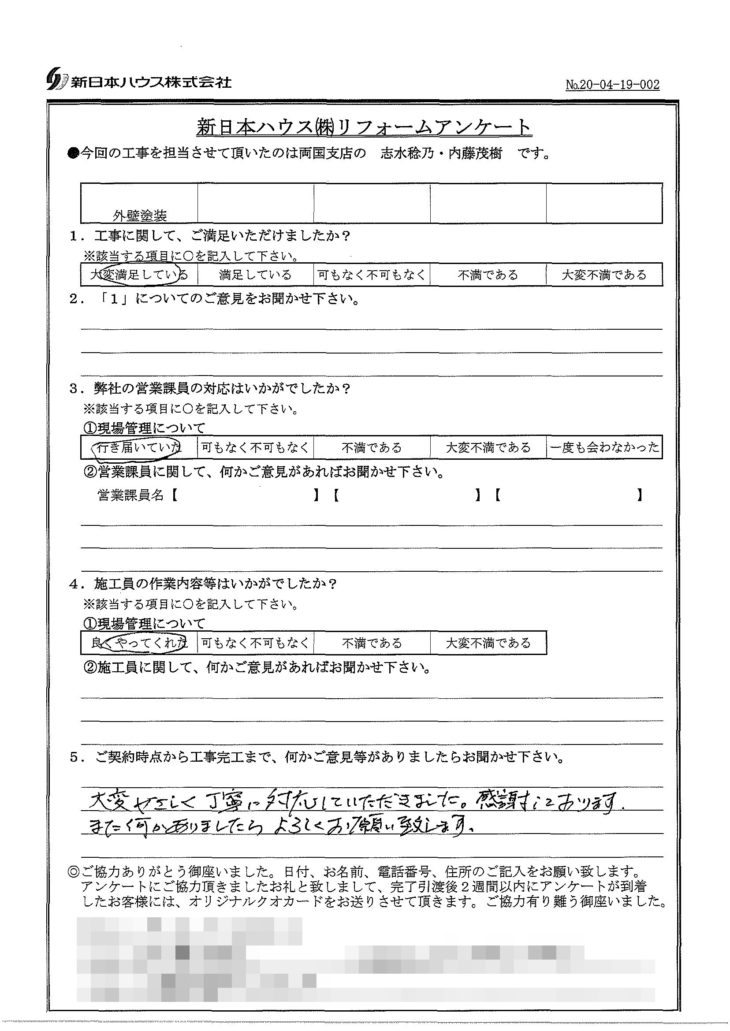 新日本ハウス株式会社
№20-04-19-002
新日本ハウス㈱リフォームアンケート
●今回の工事を担当させて頂いたのは両国支店の 志水稔乃・内藤茂樹 です。
外壁塗装
1．工事に関して、ご満足いただけましたか？
※該当する項目に○を記入して下さい。
大変満足している 満足している 可もなく不可もなく 不満である 大変不満である
2．「1」についてのご意見をお聞かせ下さい。
3．弊社の営業課員の対応はいかがでしたか？
※該当する項目に○を記入して下さい。
①現場管理について
行き届いていた 可もなく不可もなく 不満である 大変不満である 一度も会わなかった
②営業課員に関して、何かご意見があればお聞かせ下さい。
営業課員名【 】【 】【 】
4．施工員の作業内容等はいかがでしたか？
※該当する項目に○を記入して下さい。
①現場管理について
良くやってくれた 可もなく不可もなく 不満である 大変不満である
②施工員に関して、何かご意見があればお聞かせ下さい。
5．ご契約時点から工事完工まで、何かご意見等がありましたらお聞かせ下さい。
大変やさしく丁寧に対応していただきました。感謝しております．
また何かありましたらよろしくお願い致します。
◎ご協力ありがとう御座いました。日付、お名前、電話番号、住所のご記入をお願い致します。
アンケートにご協力頂きましたお礼と致しまして、完了引渡後２週間以内にアンケートが到着
したお客様には、オリジナルクオカードをお送りさせて頂きます。ご協力有り難う御座いました。